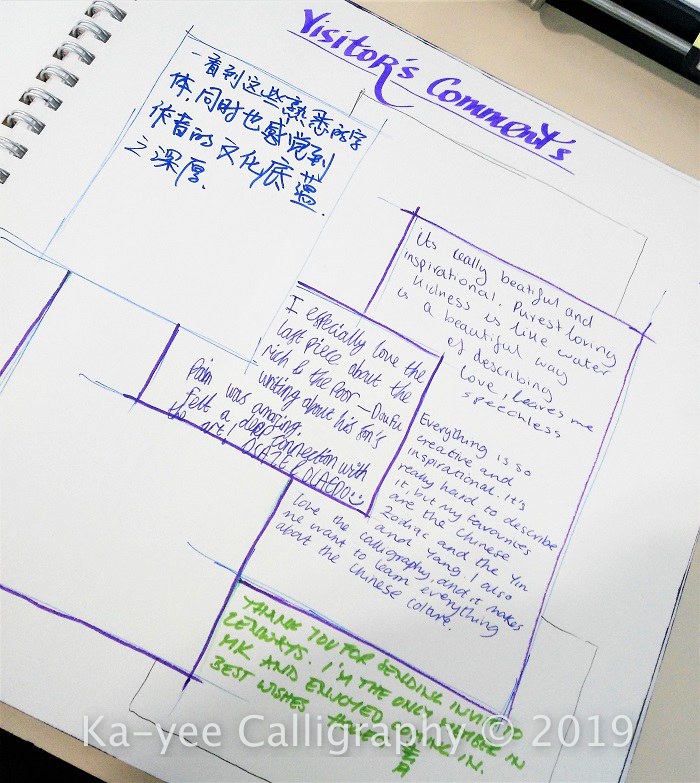 Visitor's Comments
一看到这些熟悉的字
体,同时也感觉到
作者的文化底蕴
之深厚.
Its really beatiful and
inspirational. Purest loving
kidness is like water
is a beautiful way
of describing
love, leaves me
speechless
I especially love the
last piece about the
rich & the Poor - Doufu
writing about his son's
Pain was amazing.
felt a deep connection with
the art!
Everything is so
creative and
inspirational. It's
really hard to describe
it, but my favourites
are the Chinese
Zodiac and the Yin
and Yang. I also
love the calligraphy, and it makes
me want to learn everything
about the Chinese Culture.
THANK YOU FOR SENDING INVITED
I'M THE ONLY MEMBER IN
MK AND ENJOYED COMING IN.
BEST WISHES
Ka-yee Calligraphy © 2019